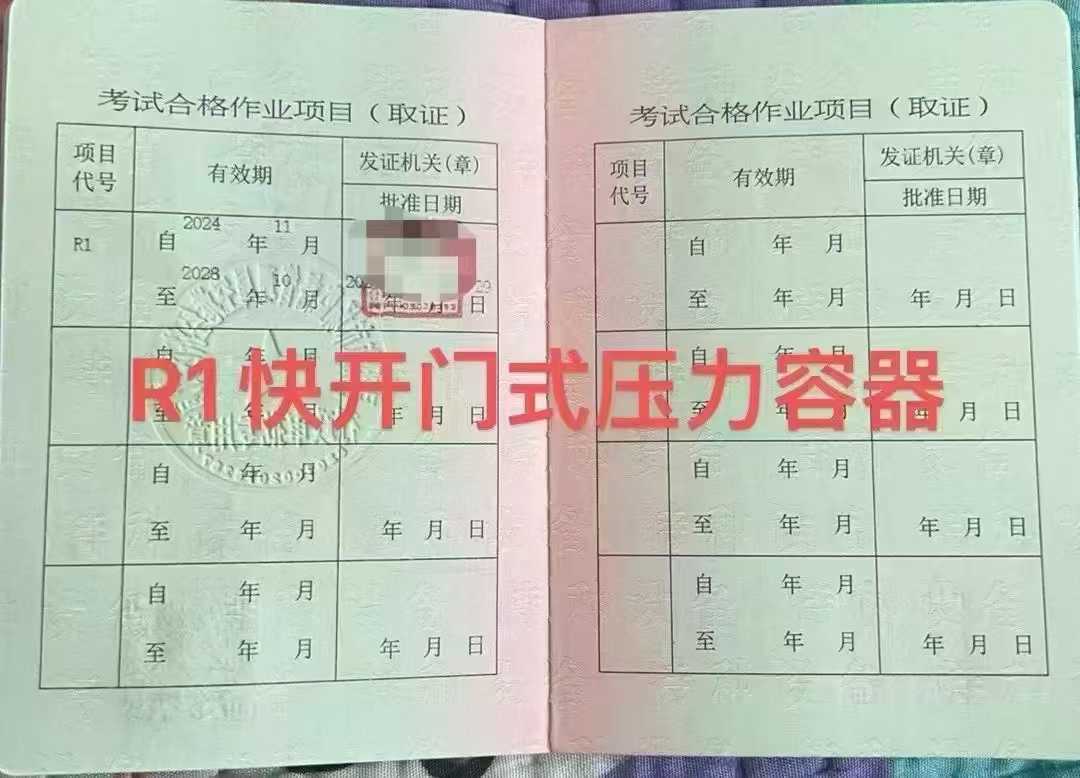 考试合格作业项目（取证）
项目代号 有效期 发证机关(章)
批准日期
R1 自 2024 年 11 月
至 2028 年 10 月 年 月 29 日
自 年 月
至 年 月 年 月 日
自 年 月
至 年 月 年 月 日
自 年 月
至 年 月 年 月 日
考试合格作业项目（取证）
项目代号 有效期 发证机关(章)
批准日期
自 年 月
至 年 月 年 月 日
自 年 月
至 年 月 年 月 日
自 年 月
至 年 月 年 月 日
自 年 月
至 年 月 年 月 日
R1快开门式压力容器